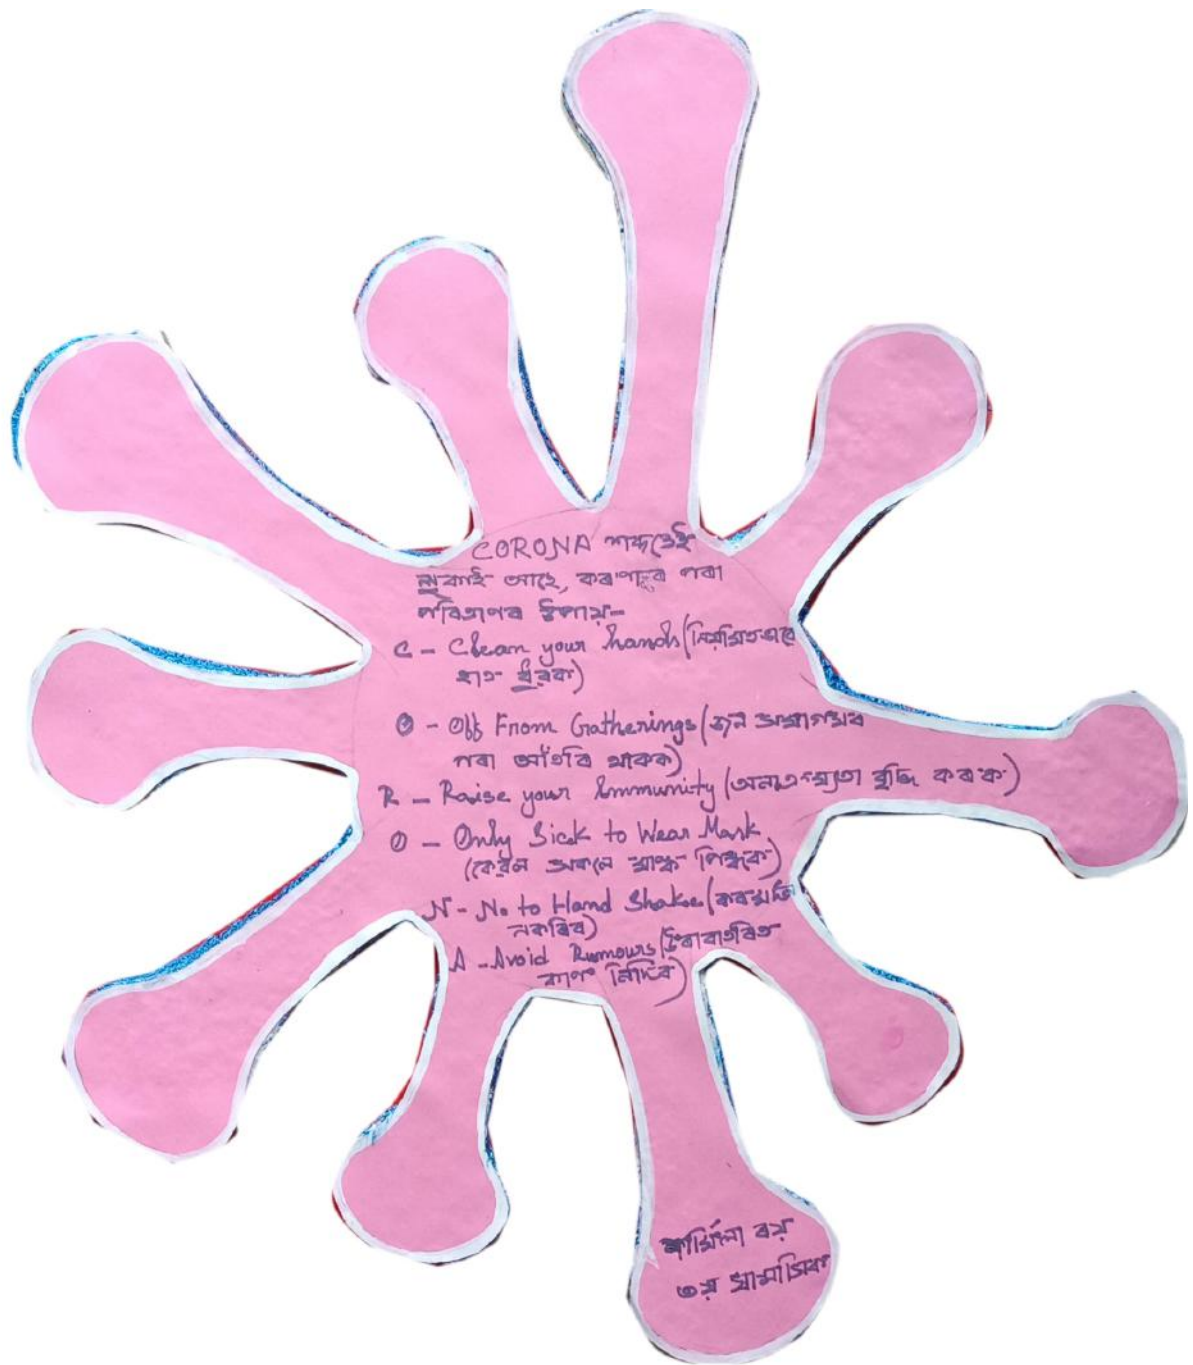 CORONA শব্দতেই
লুকাই আছে, কৰণাৰ পৰা
পৰিত্ৰাণৰ উপায়-
C - Clean your hands (নিয়মিতভাবে
হাত ধুৱক)
O - Off From Gatherings (জন সমাগমৰ
পৰা আঁতৰি থাকক)
R - Raise your Immunity (অনাক্ৰম্যতা বৃদ্ধি কৰক)
O - Only Sick to Wear Mark
(কেৱল সকলে মাস্ক পিন্ধক)
N - No to Hand Shake (কৰমৰ্দন
নকৰিব)
A - Avoid Rumours (উৰাবাতৰিত
কাণ নিদিব)
শৰ্মিলা ৰয়
৩য় ষান্মাসিক